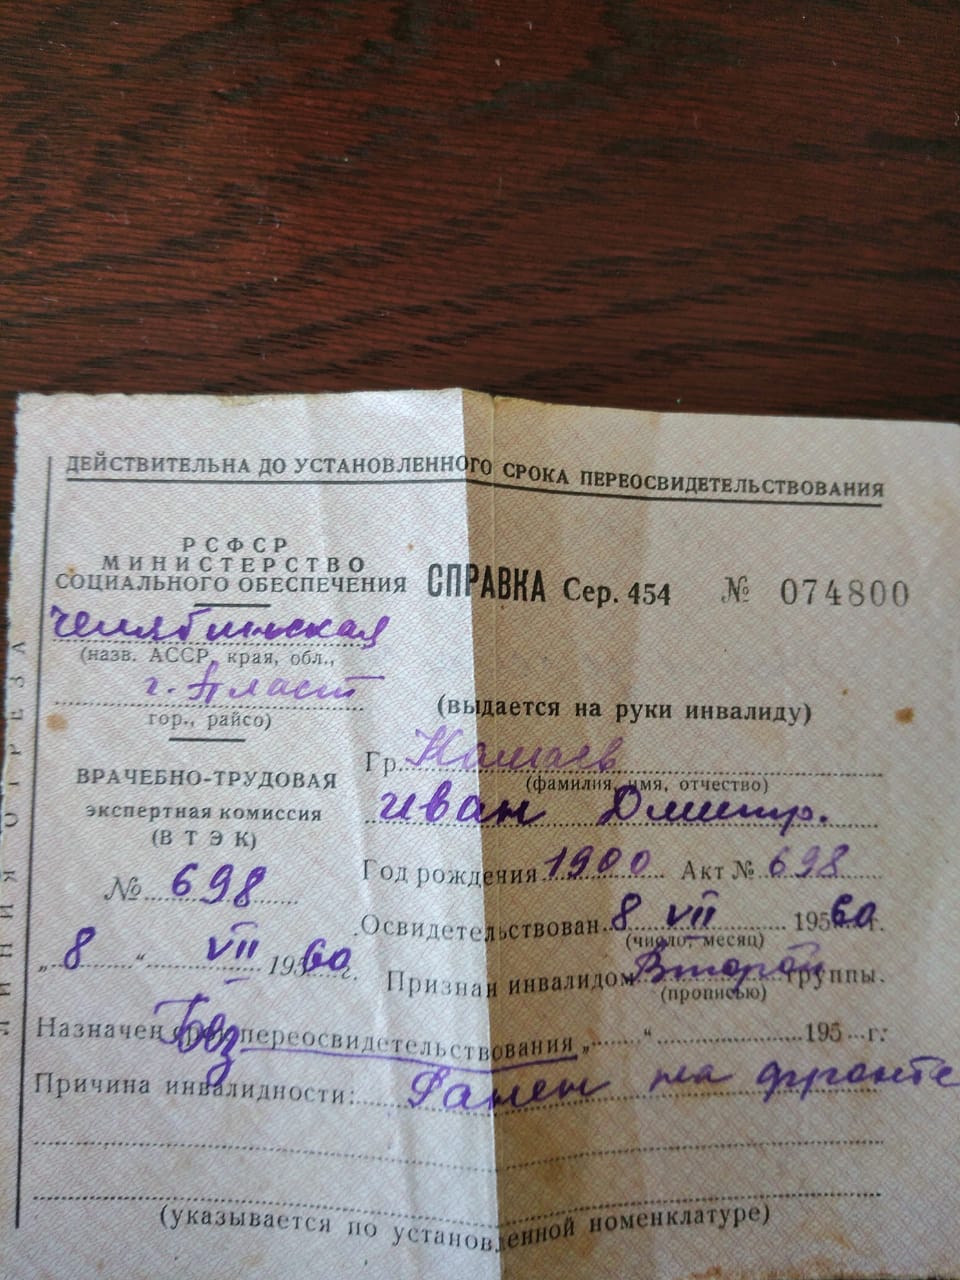 ДЕЙСТВИТЕЛЬНА ДО УСТАНОВЛЕННОГО СРОКА ПЕРЕОСВИДЕТЕЛЬСТВОВАНИЯ
ЛИНИЯ ОТРЕЗА
РСФСР
МИНИСТЕРСТВО
СОЦИАЛЬНОГО ОБЕСПЕЧЕНИЯ
Челябинская
(назв. АССР, края, обл.,
г. Пласт
гор., райсо)
ВРАЧЕБНО-ТРУДОВАЯ
экспертная комиссия
(ВТЭК)
№ 698
„8“ VII 1960 г.
СПРАВКА Сер. 454 № 074800
(выдается на руки инвалиду)
Гр.
(фамилия, имя, отчество)
Иван Дмитр.
Год рождения 1900 Акт № 698
Освидетельствован 8 VII 195 60 г.
(число, месяц)
Признан инвалидом Второй группы.
(прописью)
Назначен срок переосвидетельствования „ “ 195 г.
Без
Причина инвалидности: Ранен на фронте
(указывается по установленной номенклатуре)